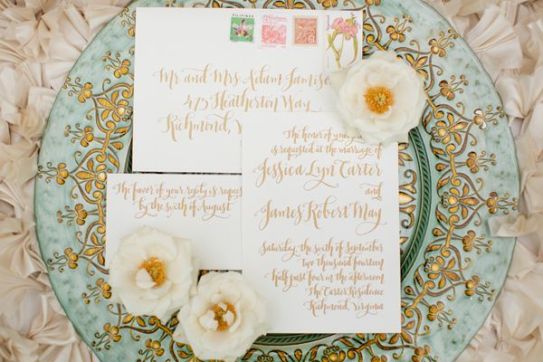 PILIPINAS
Mr and Mrs Adam Jamison
473 Heatherston Way
Richmond,
The honor of your
is requested at the marriage of
Jessica Lyn Carter
and
James Robert May
Saturday, the sixth of September
two thousand fourteen
half past four in the afternoon
The Carter Residence
Richmond, Virginia
The favor of your reply is reques
by the sixth of August